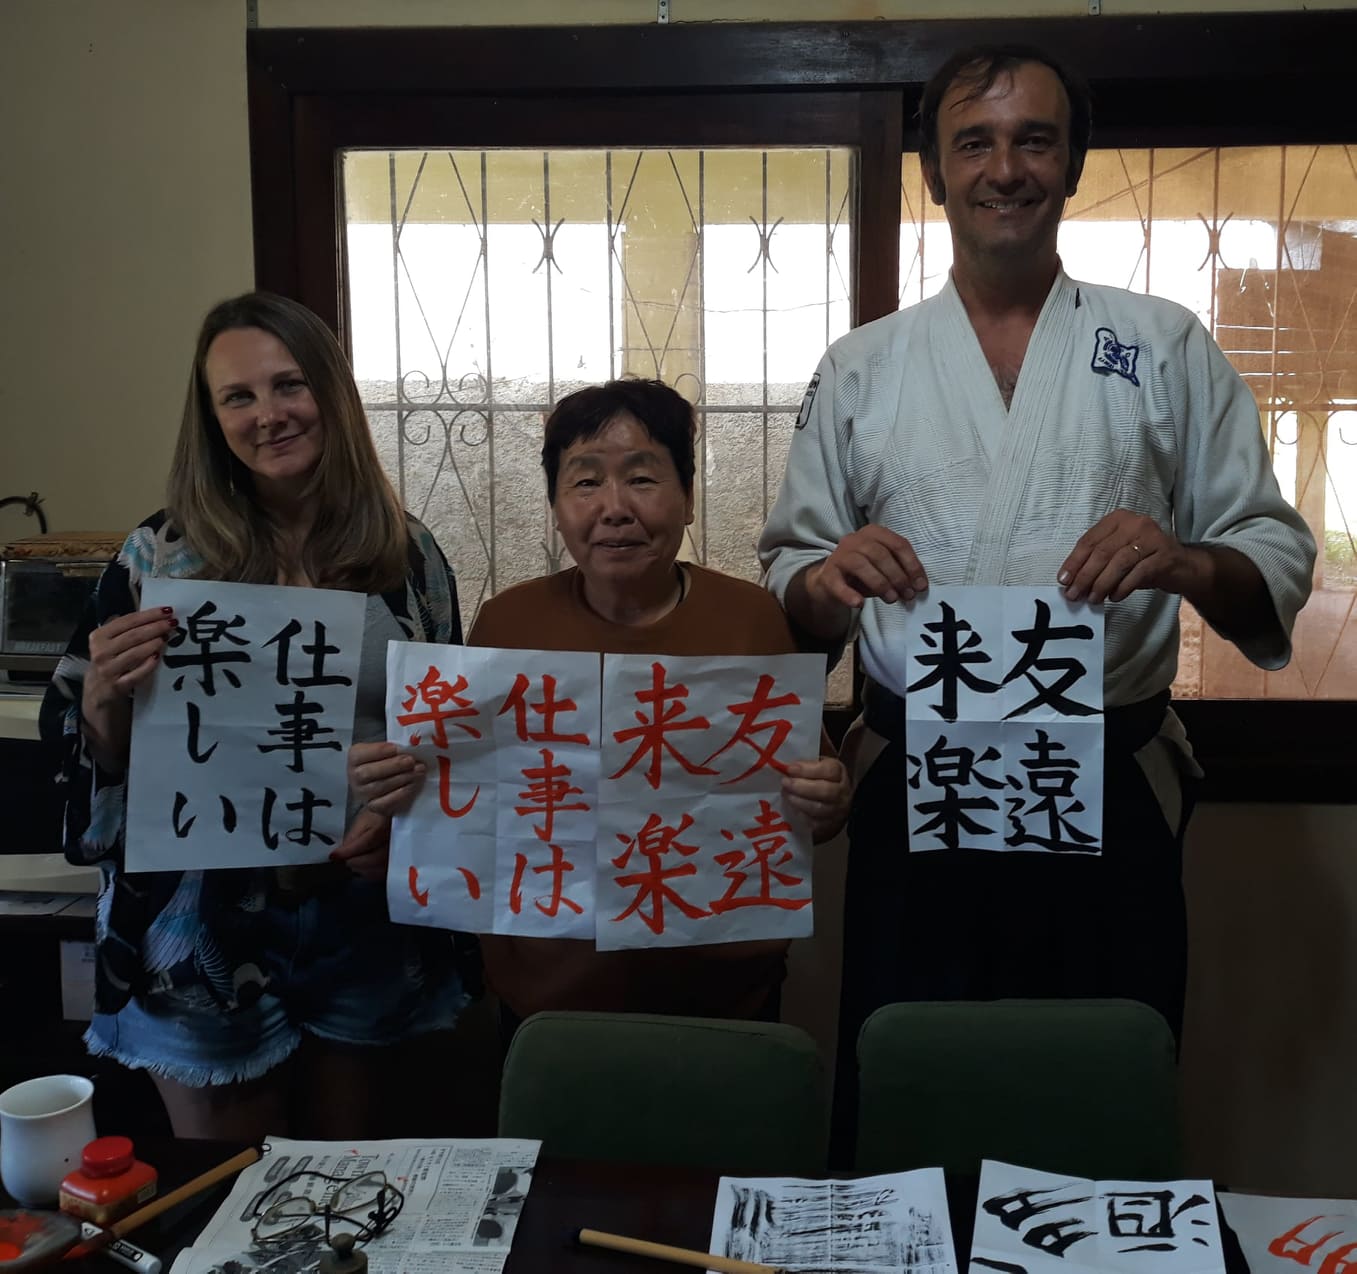 仕事は
楽しい
仕事は
楽しい
友遠
来楽
友遠
来楽